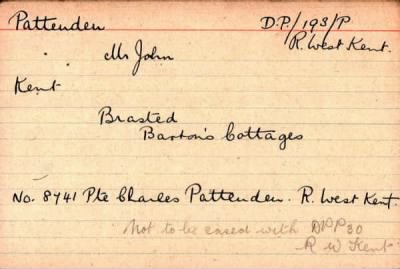 Pattenden D.P./193/P
R. West Kent.
Mr John
Kent
Brasted
Barton's Cottages
No. 8741 Pte Charles Pattenden. R. West Kent.
Not to be cased with DPP 30
R W Kent